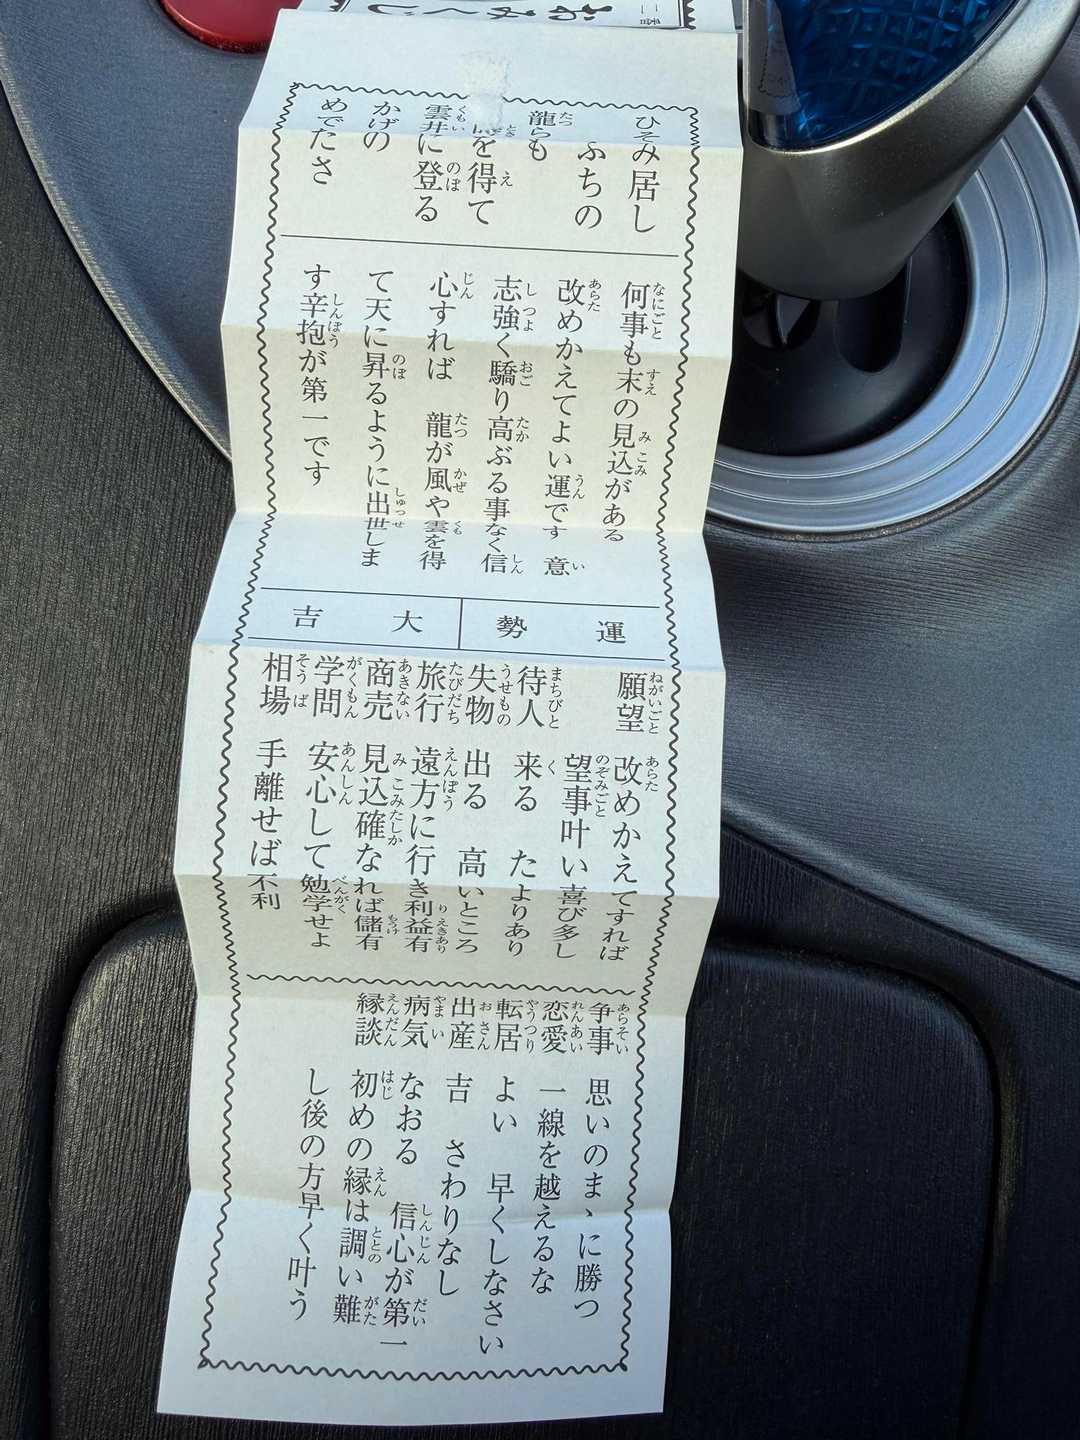 ひそみ居し
ふちの
龍らも
を得て
雲井に登る
かげの
めでたさ
何事も末の見込がある
改めかえてよい運です　意
志強く驕り高ぶる事なく信
心すれば　龍が風や雲を得
て天に昇るように出世しま
す辛抱が第一です
運勢　大吉
願望　改めかえてすれば
望事叶い喜び多し
待人　来る　たよりあり
失物　出る　高いところ
旅行　遠方に行き利益有
商売　見込確なれば儲有
学問　安心して勉学せよ
相場　手離せば不利
争事　思いのまゝに勝つ
恋愛　一線を越えるな
転居　よい　早くしなさい
出産　吉　さわりなし
病気　なおる　信心が第一
縁談　初めの縁は調い難
し後の方早く叶う